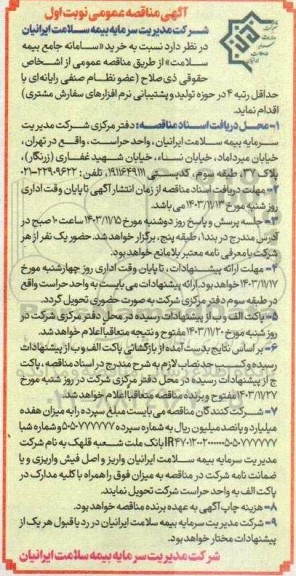 آگهی مناقصه عمومی نوبت اول
شرکت مدیریت سرمایه بیمه سلامت ایرانیان
در نظر دارد نسبت به خرید «سامانه جامع بیمه
سلامت» از طریق مناقصه عمومی از اشخاص
حقوقی ذی‌صلاح (عضو نظام صنفی رایانه‌ای با
حداقل رتبه ۴ در حوزه تولید و پشتیبانی نرم افزارهای سفارش مشتری)
اقدام نماید.
۱- محل دریافت اسناد مناقصه: دفتر مرکزی شرکت مدیریت
سرمایه بیمه سلامت ایرانیان، واحد حراست، واقع در تهران،
خیابان میرداماد، خیابان نساء، خیابان شهید غفاری (زرنگار)،
پلاک ۳۷، طبقه سوم، کدپستی ۱۹۱۱۶۴۹۱۱۱، تلفن: ۲۲۹۰۹۶۲۲-۰۲۱
۲- مهلت دریافت اسناد مناقصه از زمان انتشار آگهی تا پایان وقت اداری
روز شنبه مورخ ۱۴۰۳/۱۱/۱۳ می باشد.
۳- جلسه پرسش و پاسخ روز دوشنبه مورخ ۱۴۰۳/۱۱/۱۵ ساعت ۱۰ صبح در
آدرس مندرج در بند ۱، طبقه پنج، برگزار خواهد شد. حضور یک نفر از هر
شرکت با معرفی نامه معتبر بلامانع خواهد بود.
۴- مهلت ارائه پیشنهادات، تا پایان وقت اداری روز چهارشنبه مورخ
۱۴۰۳/۱۱/۱۷ خواهد بود. ارائه پیشنهادات می بایست به واحد حراست واقع
در طبقه سوم دفتر مرکزی شرکت به صورت حضوری تحویل گردد.
۵- پاکت الف و ب از پیشنهادات رسیده در محل دفتر مرکزی شرکت در
روز شنبه مورخ ۱۴۰۳/۱۱/۲۰ مفتوح و نتیجه متعاقبا اعلام خواهد شد.
۶- بر اساس نتایج بدست آمده از بازگشائی پاکت الف و ب از پیشنهادات
رسیده و کسب حد نصاب لازم به شرح مندرج در اسناد مناقصه، پاکت
ج از پیشنهادات رسیده در محل دفتر مرکزی شرکت در روز شنبه مورخ
۱۴۰۳/۱۱/۲۷ مفتوح و برنده مناقصه متعاقبا اعلام خواهد شد.
۷- شرکت کنندگان مناقصه می بایست مبلغ سپرده را به میزان هفده
میلیارد و پانصد میلیون ریال به شماره سپرده و شماره شبا
بانک ملت شعبه قلهک به نام شرکت
مدیریت سرمایه بیمه سلامت ایرانیان واریز و اصل فیش واریزی و یا
ضمانت نامه شرکت در مناقصه به میزان فوق را همراه با کلیه مدارک در
پاکت الف به واحد حراست شرکت تحویل نمایند.
۸- هزینه چاپ آگهی به عهده برنده مناقصه خواهد بود.
۹- شرکت مدیریت سرمایه بیمه سلامت ایرانیان در رد یا قبول هر یک از
پیشنهادات مختار خواهد بود.
شرکت مدیریت سرمایه بیمه سلامت ایرانیان